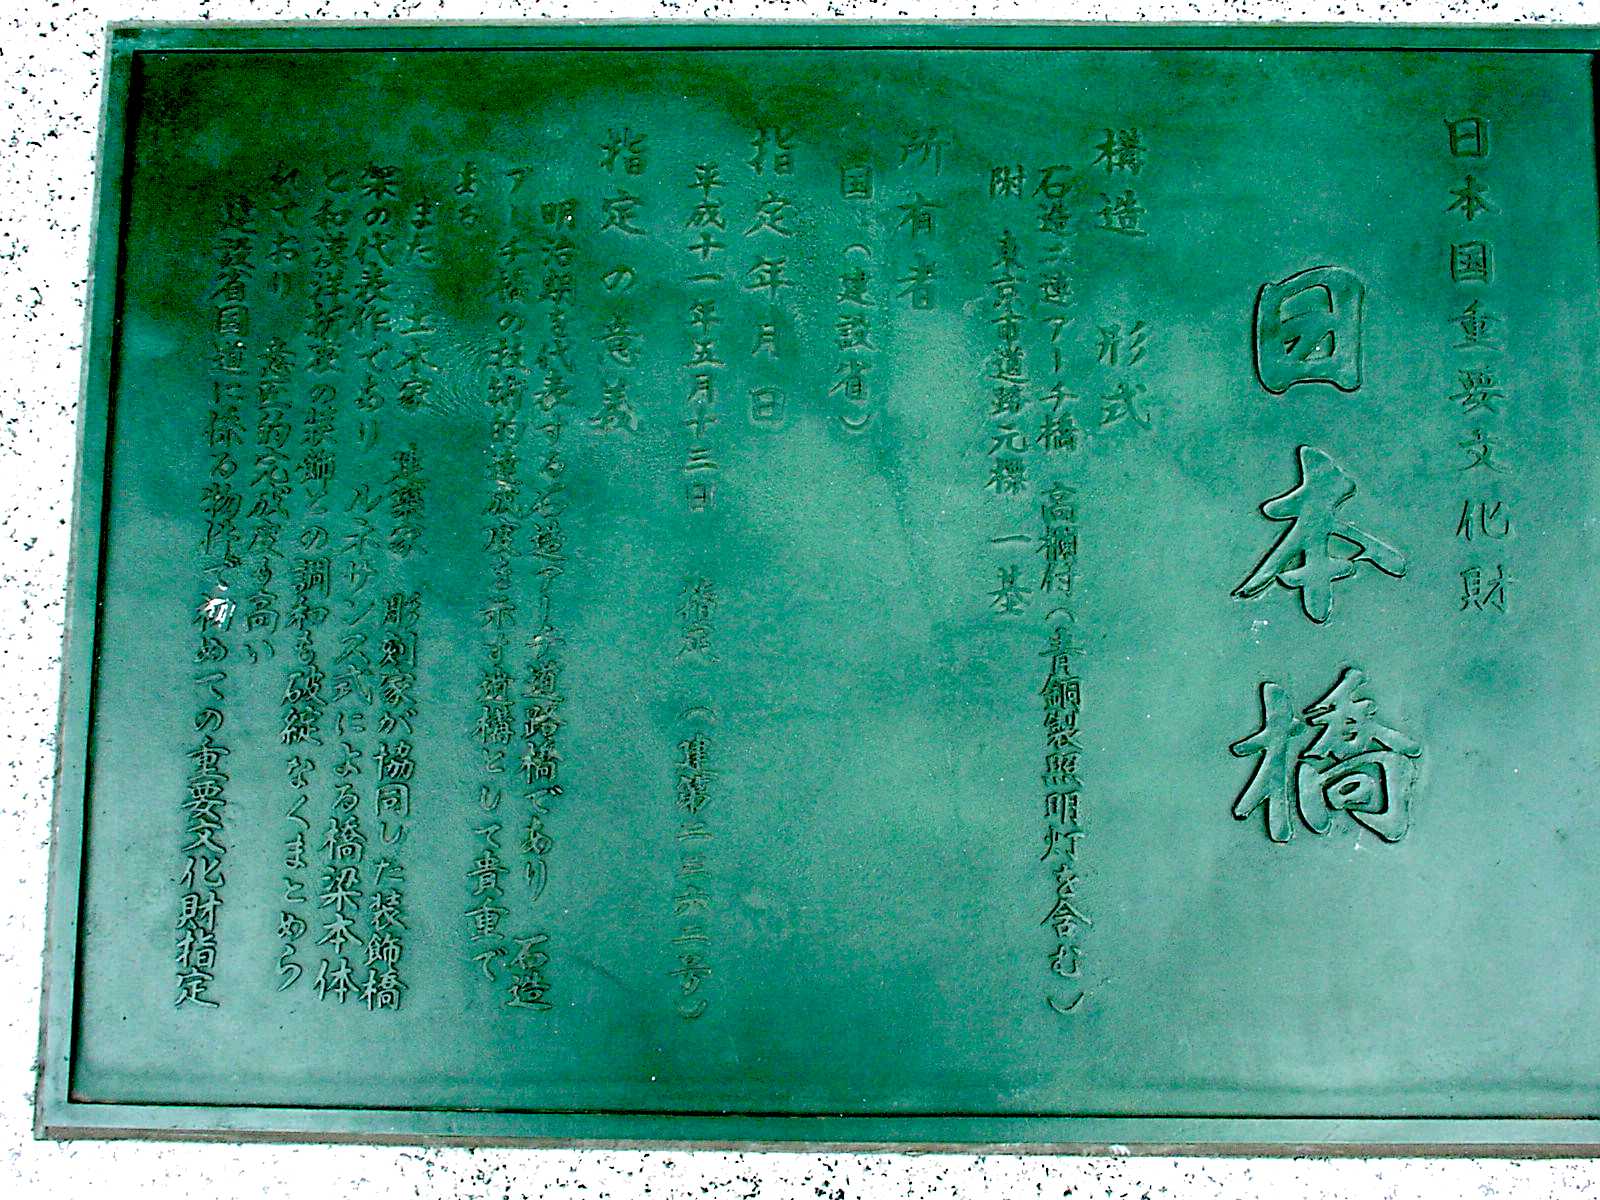 日本国重要文化財
日本橋
構造 形式
石造二連アーチ橋 高欄付(青銅製照明灯を含む)
附 東京市道路元標 一基
所有者
国(建設省)
指定年月日
平成十一年五月十三日 指定 (建第二三六三号)
指定の意義
明治期を代表する石造アーチ道路橋であり 石造
アーチ橋の技術的達成度を示す遺構として貴重で
ある
また 土木家 建築家 彫刻家が協同した装飾橋
架の代表作であり ルネサンス式による橋梁本体
と和漢洋折衷の装飾との調和も破綻なくまとめら
れており 意匠的完成度も高い
建設省国道に係る物件で初めての重要文化財指定